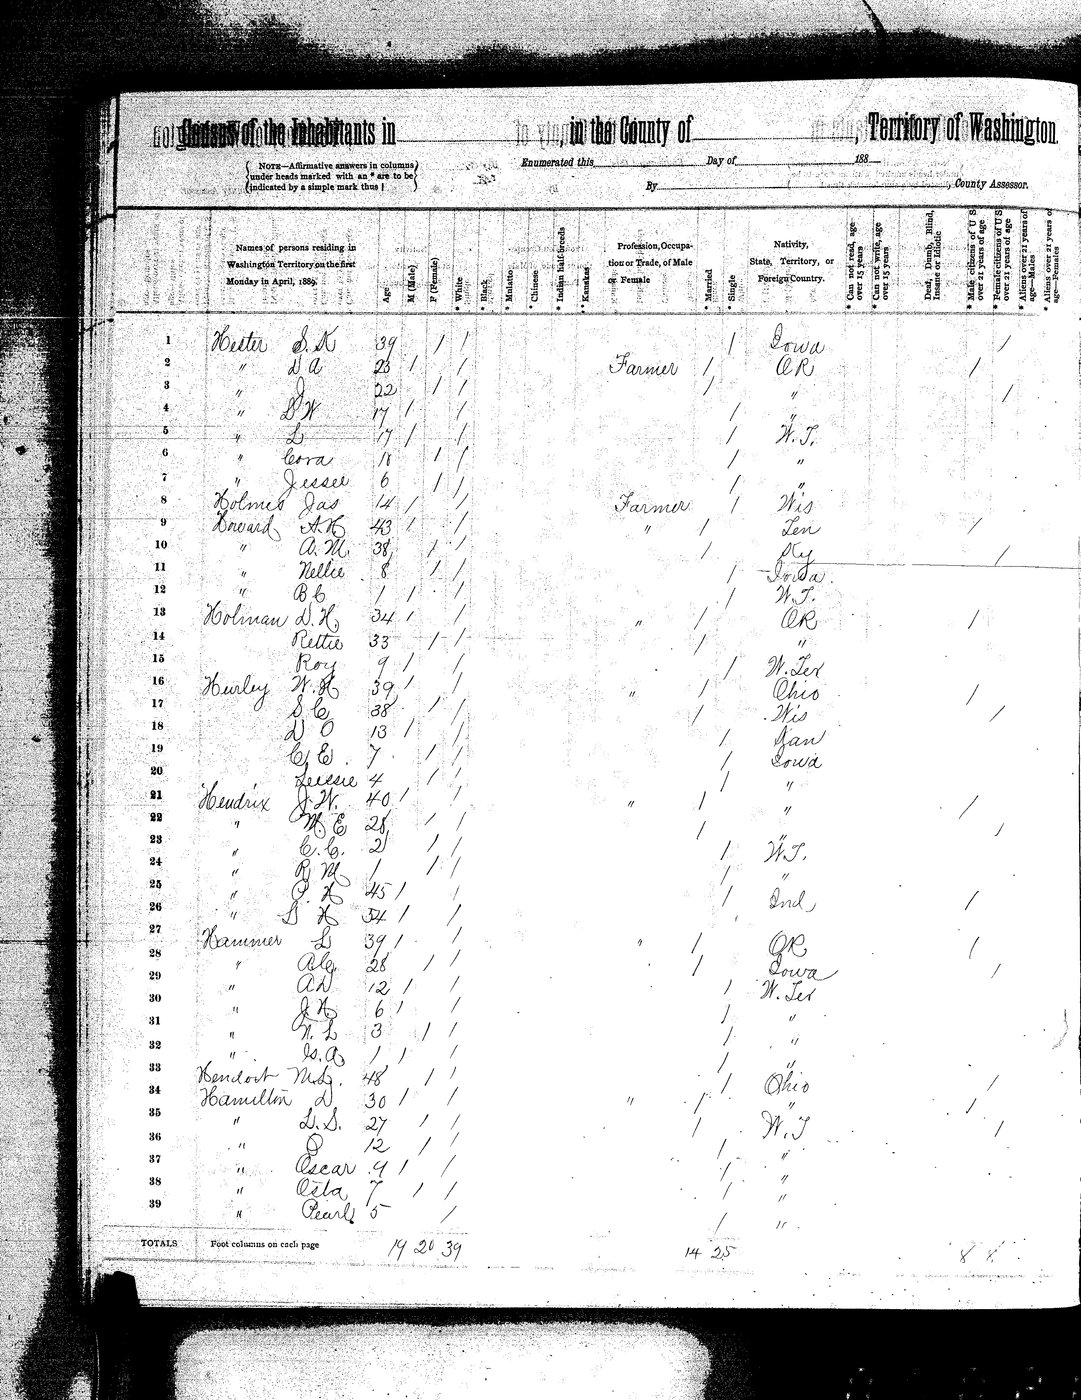 Census of the Inhabitants in , in the County of , Territory of Washington.
NOTE—Affirmative answers in columns under heads marked with an * are to be indicated by a simple mark thus |
Enumerated this Day of 188
By , County Assessor.
Names of persons residing in Washington Territory on the first Monday in April, 1889. Age M (Male) F (Female) * White * Black * Mulatto * Chinese * Indian half-breeds * Kanakas Profession, Occupation or Trade, of Male or Female * Married * Single Nativity, State, Territory, or Foreign Country. * Can not read, age over 15 years * Can not write, age over 15 years Deaf, Dumb, Blind, Insane or Idiotic * Male citizens of U S over 21 years of age * Female citizens of U S over 21 years of age * Aliens over 21 years of age—Males * Aliens over 21 years of age—Females
1 Hester S. K 39 / / / Iowa /
2 " D A 23 / / Farmer / OR /
3 " J 22 / / / " /
4 " S W 17 / / / "
5 " L 17 / / / W. T.
6 " Cora 10 / / / "
7 " Jessee 6 / / / "
8 Holmes Jas 14 / / Farmer / Wis
9 Howard A. H 43 / / " / Ten /
10 " A. M. 38 / / / Ky /
11 " Nellie 8 / / / Iowa
12 " B C 1 / / / W. T.
13 Holman D. H. 34 / / " / OR /
14 Rettie 33 / / / "
15 Roy 9 / / / W. Ter
16 Hurley W. H 39 / / " / Ohio /
17 S C 38 / / / Wis /
18 D O 13 / / / Kan
19 C. E. 7 / / / Iowa
20 4 / / / "
21 Hendrix J. W. 40 / / " / " /
22 " M E 28 / / / " /
23 " C. C. 2 / / / W. T.
24 " R M 1 / / / "
25 " P. H 45 / / / Ind /
26 " S H 54 / /
27 Hammer L 39 / / " / OR /
28 " 28 / / / Iowa /
29 " A D 12 / / / W. Ter
30 " J. H 6 / / / "
31 " N. L 3 / / / "
32 " G. A 1 / / / "
33 M. L. 48 / / / Ohio /
34 Hamilton D 30 / / " / " /
35 " L. S. 27 / / / W. T /
36 " P 12 / / / "
37 " Oscar 9 / / / "
38 " Osta 7 / / / "
39 " Pearl 5 / / "
TOTALS Foot columns on each page 19 20 39 14 25 8 8